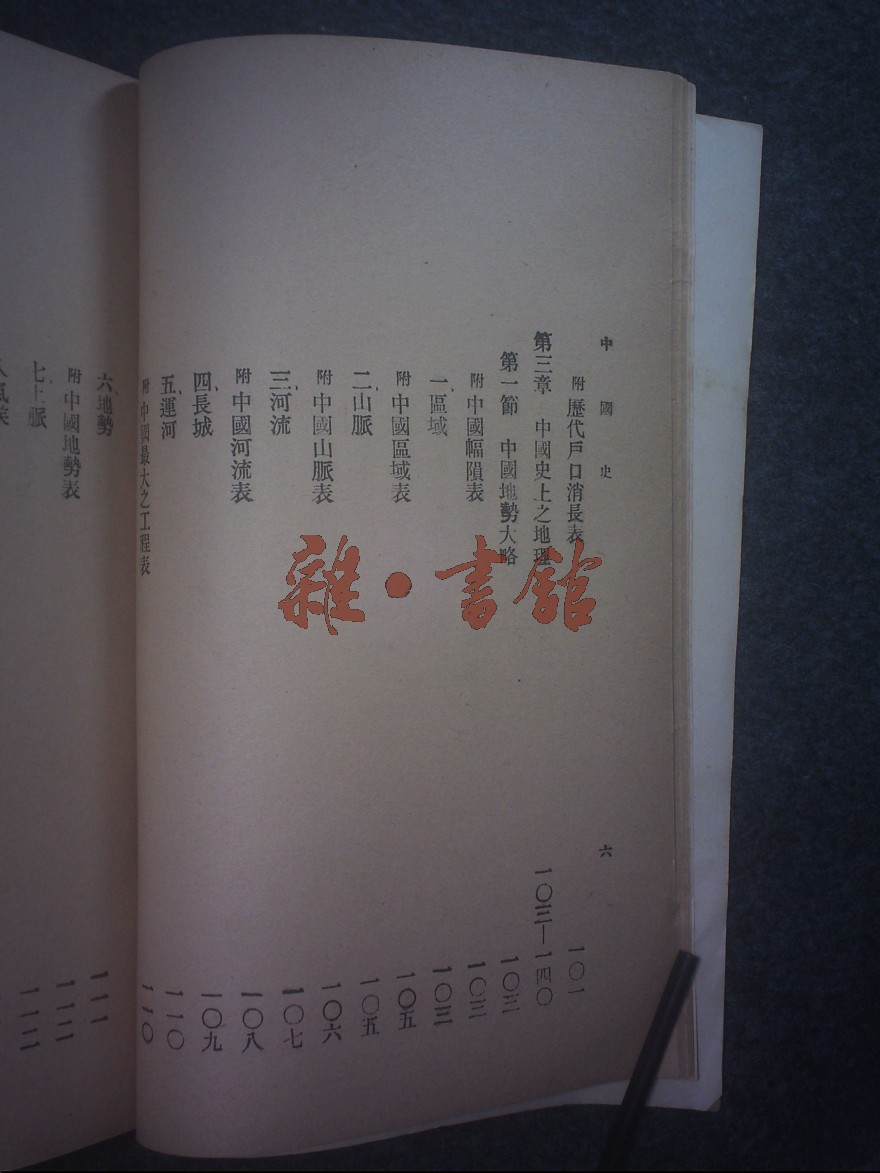 中國史 六
附 歷代戶口消長表 一〇一
第三章 中國史上之地理 一〇三—一四〇
第一節 中國地勢大略 一〇三
附 中國幅隕表 一〇三
一、區域 一〇三
附 中國區域表 一〇五
二、山脈 一〇五
附 中國山脈表 一〇六
三、河流 一〇七
附 中國河流表 一〇八
四、長城 一〇九
五、運河 一一〇
附 中國最大之工程表 一一〇
六、地勢 一一一
附 中國地勢表 一一二
一一二
雜·書館